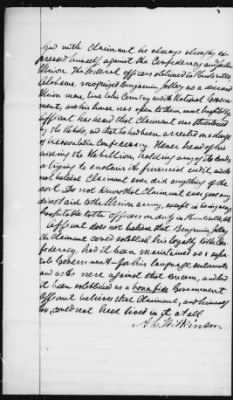 and with Claimant he always strongly ex-
pressed himself against the Confederacy and for the
Union. The Federal officers stationed in Huntsville
Alabama, recognized Benjamin Jolley as a decided
Union man, true to his Country and its National Govern-
ment, and his house was open to them most hospitably
Affiant has heard that Claimant was threatened
by the Rebels, and that he had been arrested on a charge
of treasonable conspiracy. Never heard of his
aiding the Rebellion, holding any of its bonds
or trying to sustain its financial credit, and does
not believe Claimant ever did anything of the
sort. Do not know that Claimant ever gave any
direct aid to the Union army, except in being
hospitable to the officers on duty in Huntsville Ala
Affiant does not believe that Benjamin Jolley
the claimant could establish his loyalty to the Con-
federacy, had it been maintained as a sepa-
rate Government - for his language, sentiments
and acts were against that concern, and had
it been established as a bona fide Government
Affiant believes that Claimant, and himself
too, could not have lived in it at all
A. C. Wilkinson